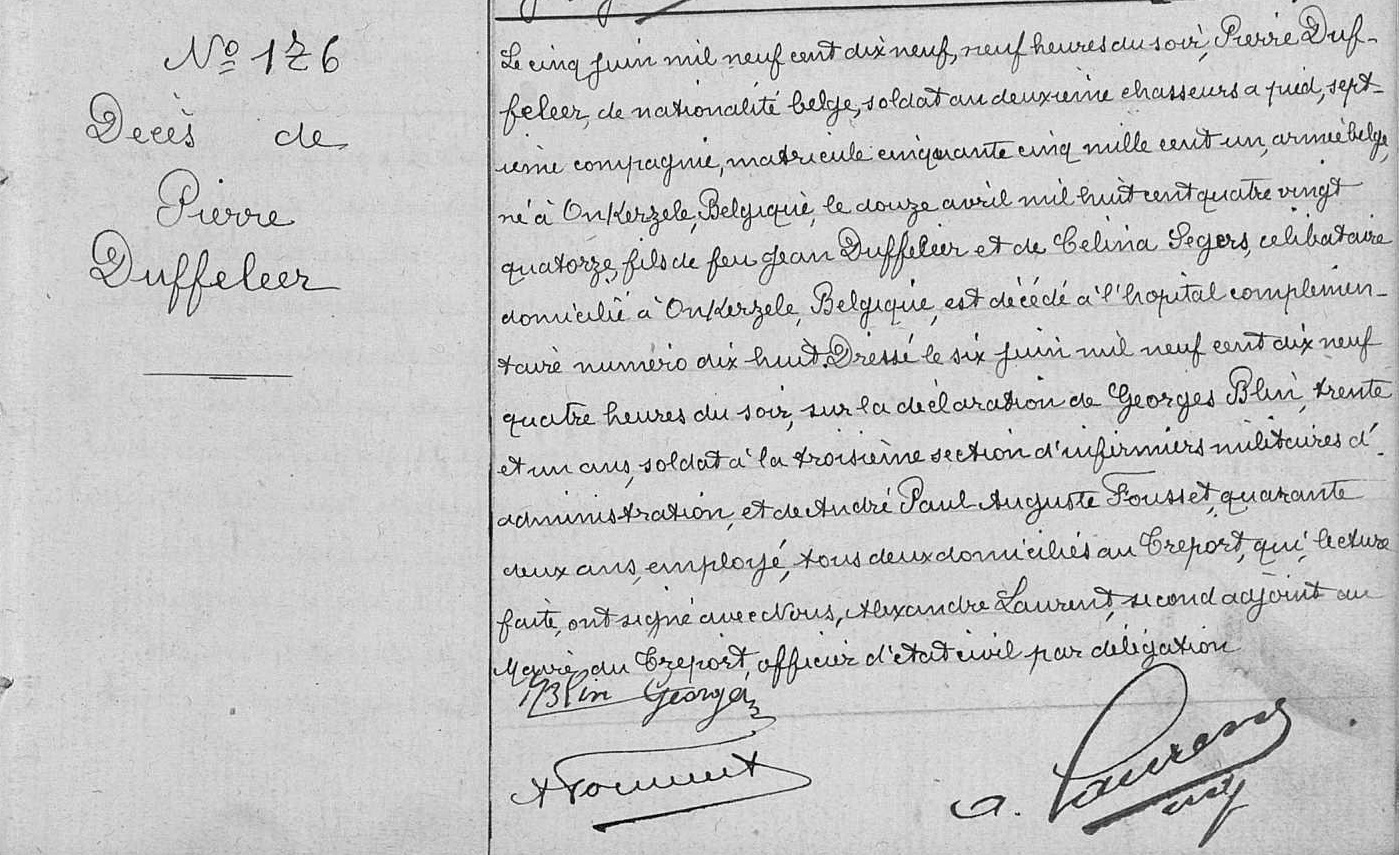 Nº 126
Decès de
Pierre
Duffeleer
Le cinq juin mil neuf cent dix neuf, neuf heures du soir, Pierre Duf-
feleer, de nationalité belge, soldat au deuxieme chasseurs a pied, sept-
ieme compagnie, matricule cinquante cinq mille cent un, armée belge,
né à Onkerzele, Belgique, le douze avril mil huit cent quatre vingt
quatorze, fils de feu Jean Duffeleer et de Celina Segers, celibataire
domicilié à Onkerzele, Belgique, est décédé à l'hopital complemen-
taire numéro dix huit. Dressé le six juin mil neuf cent dix neuf
quatre heures du soir, sur la déclaration de Georges Blin, trente
et un ans, soldat à la troisième section d'infirmiers militaires d'
administration, et de André Paul Auguste Fousset, quarante
deux ans, employé, tous deux domiciliés au Treport, qui, lecture
faite, ont signé avec Nous, Alexandre Laurent, second adjoint au
Maire du Treport, officier d'état civil par délégation
Blin Georges
A. Laurent